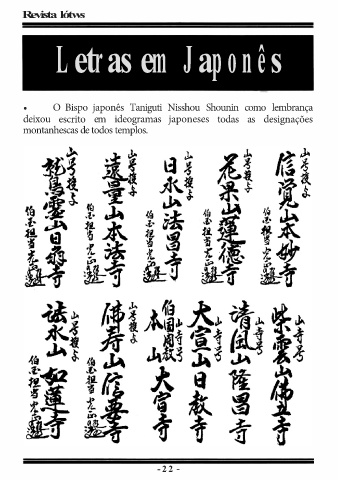 Revista lótws
Letras em Japonês
• O Bispo japonês Taniguti Nisshou Shounin como lembrança
deixou escrito em ideogramas japoneses todas as designações
montanhescas de todos templos.
山号授与
信覚山本妙寺
山号授与
花果山蓮徳寺
日永山法昌寺
山号授与
遠量山本法寺
山号授与
鷲山日
伯国担当
山寺号
紫雲山佛立寺
山寺号
清風山隆昌寺
山寺号
大宣山日教寺
伯国開教
本山大宣寺
山号授与
佛寿山信要寺
山号授与
法永山如蓮寺
伯国担当
-22-